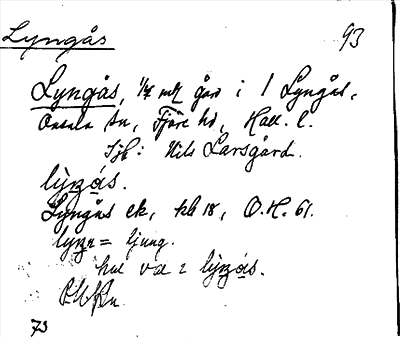 Lyngås 93
Lyngås, 1/4 mtl gård i 1 Lyngås,
Onsala sn, Fjäre hd, Hall. l.
Tjb: Nils Larsgård.
lyŋås.
Lyngås ek, kb 18, O.H. 61.
lyŋŋ = ljung.
hul va i lyŋås.
73